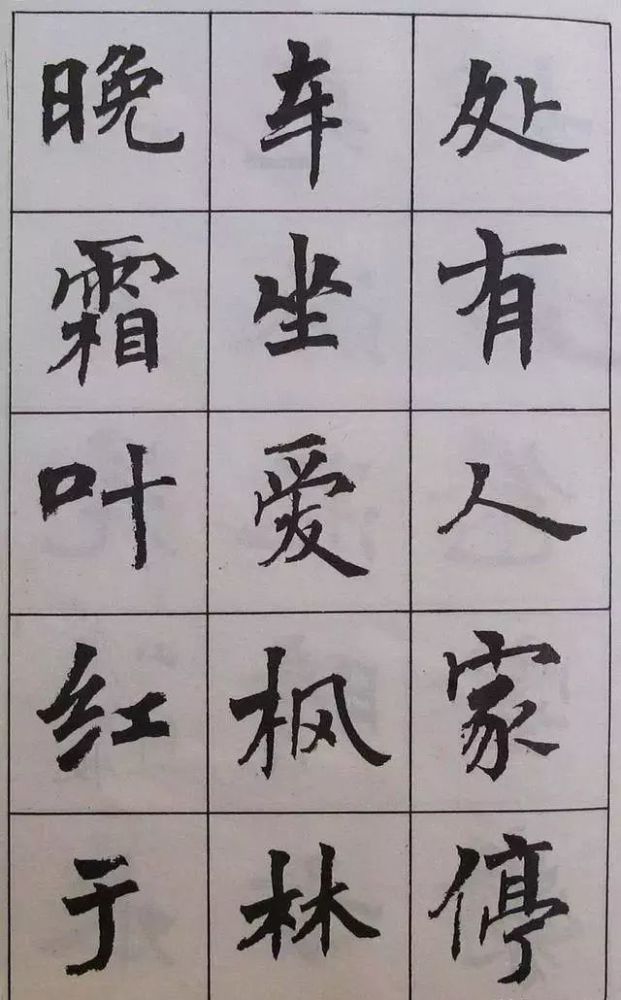 处有人家停
车坐爱枫林
晚霜叶红于